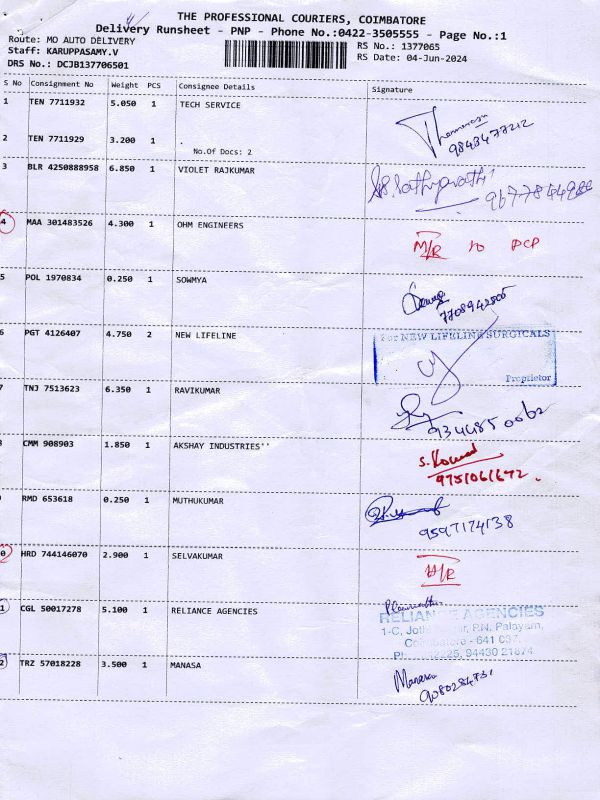 THE PROFESSIONAL COURIERS, COIMBATORE
Delivery Runsheet - PNP - Phone No.:0422-3505555 - Page No.:1
Route: MO AUTO DELIVERY
Staff: KARUPPASAMY.V
DRS No.: DCJB137706501
RS No.: 1377065
RS Date: 04-Jun-2024
S No Consignment No Weight PCS Consignee Details Signature
1 TEN 7711932 5.050 1 TECH SERVICE
2 TEN 7711929 3.200 1
No.Of Docs: 2
9843477212
3 BLR 4250888958 6.850 1 VIOLET RAJKUMAR
4 MAA 301483526 4.300 1 OHM ENGINEERS
M/R to PCP
5 POL 1970834 0.250 1 SOWMYA
7708942505
6 PGT 4126407 4.750 2 NEW LIFELINE
For NEW LIFELINE SURGICALS
Proprietor
7 TNJ 7513623 6.350 1 RAVIKUMAR
9344850062
CMM 908903 1.850 1 AKSHAY INDUSTRIES''
9751061672.
RMD 653618 0.250 1 MUTHUKUMAR
9597174138
0 HRD 744146070 2.900 1 SELVAKUMAR
1 CGL 50017278 5.100 1 RELIANCE AGENCIES
RELIANCE AGENCIES
1-C, P.N. Palayam,
Coimbatore - 641 037.
94430 21874
2 TRZ 57018228 3.500 1 MANASA
Manasa
9080284731